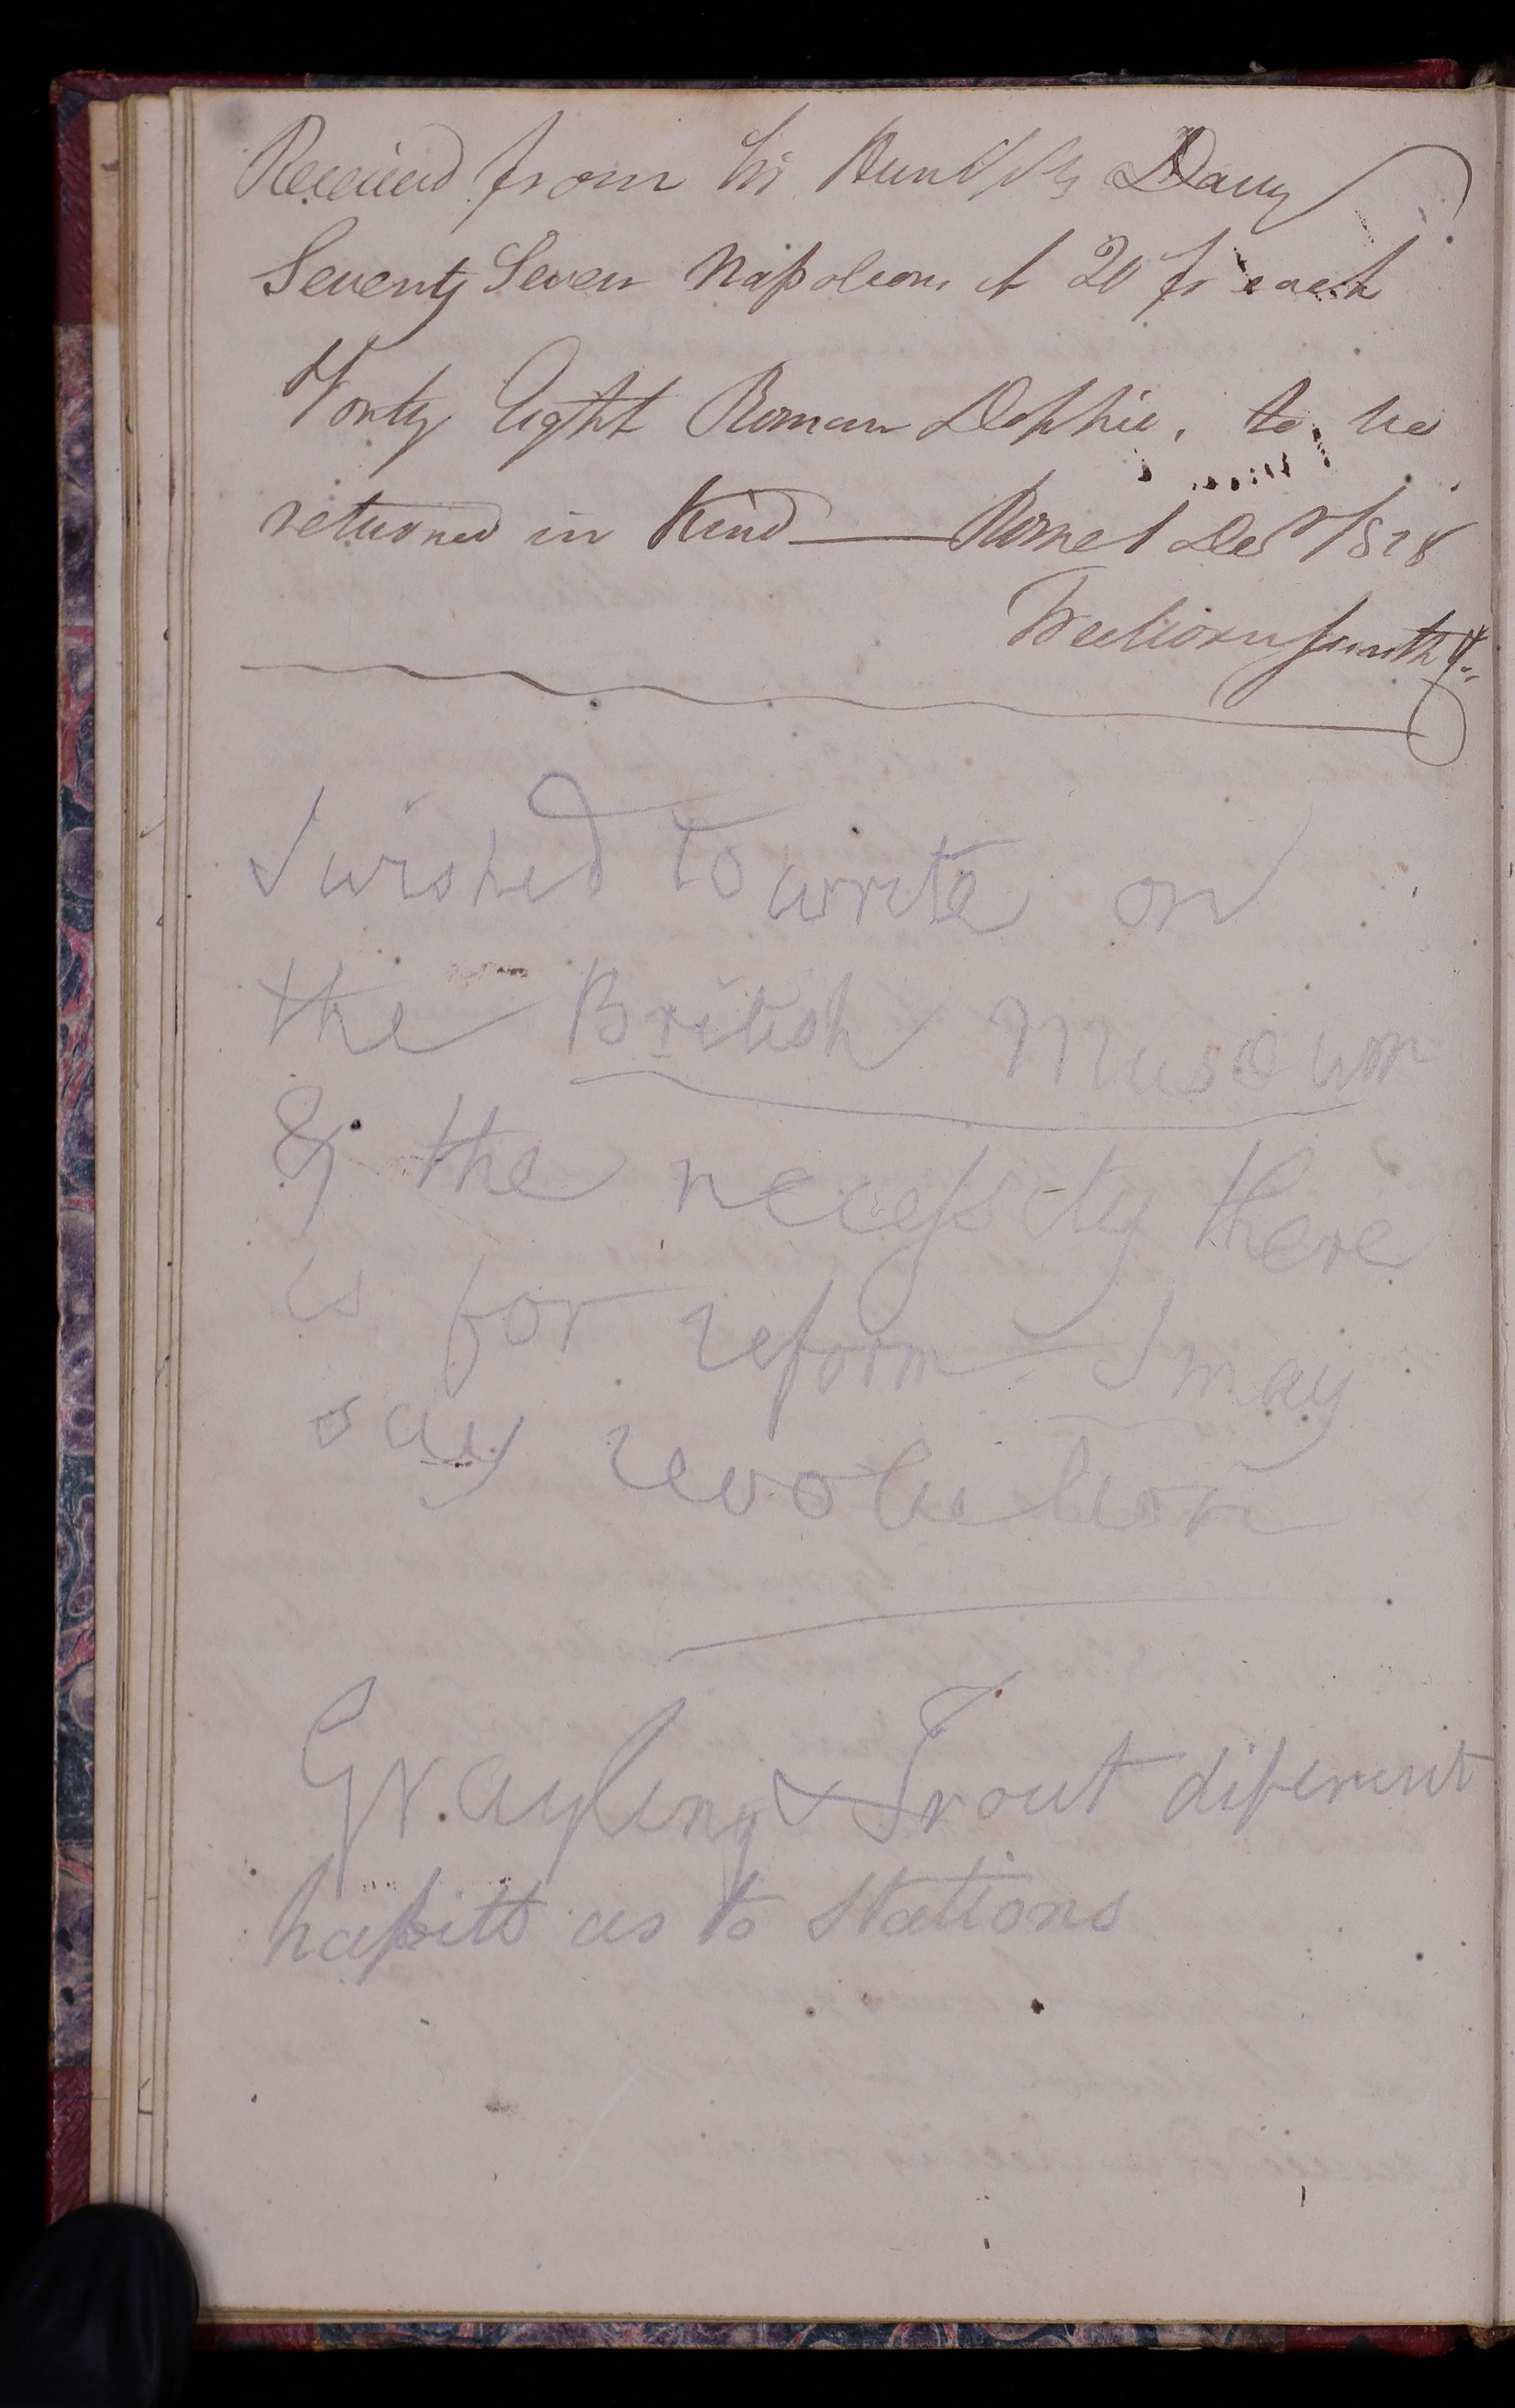 Received from Sir Humphry Davy
Seventy Seven Napoleons of 20 fr each
Forty Eight Roman Dophie, to be
returned in Kind — Rome 1 Decr 1828
Smith
I wished to write on
the British Museum
& the necessity there
is for reform - I may
say revolution
Grayling & Trout diferent
habits as to stations